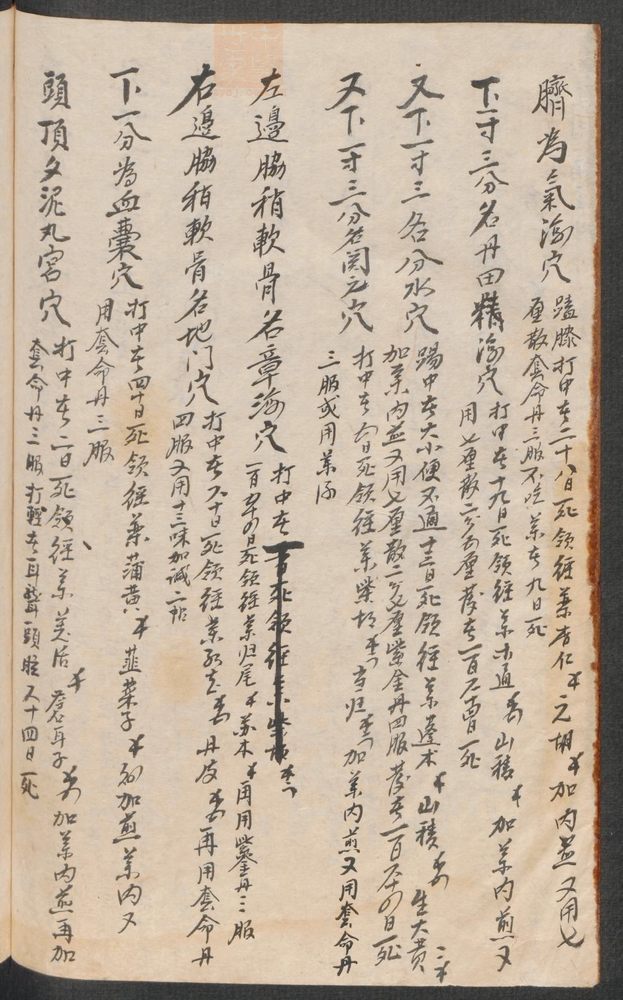 臍為氣海穴
磕膝打中者二十八日死領經藥杏仁 元胡 加內煎又用七
厘散奪命丹三服不吃藥者九日死
下一寸三分名丹田精海穴
打中者十九日死領經藥木通 山積 加藥內煎又
用七厘散二分五厘 發者一百 死
又下一寸三各分水穴
踢中者大小便不通十三日死領經藥蓬术 山積 生大黃 二
加藥內並又用七厘散二分 厘紫金丹四服發者一百六十四日死
又下一寸三分名関元穴
打中者 日死領經藥柴胡 當归 加藥內煎又用奪命丹
三服或用藥
左邊脇稍軟骨名章海穴
打中者
一百 日死領經藥归尾 苏木 再用紫金丹三服
右邊脇稍軟骨名地门穴
打中者六十日死領經藥 丹皮 再用奪命丹
四服又用十三味加减二帖
下一分為血囊穴
打中者四十日死領經藥蒲黄 韮菜子 加煎藥內又
用奪命丹三服
頭頂 泥丸宮穴
打中者二日死領經藥羌活 蒼耳子 加藥內煎再加
奪命丹三服打輕者耳聾頭 六十四日死